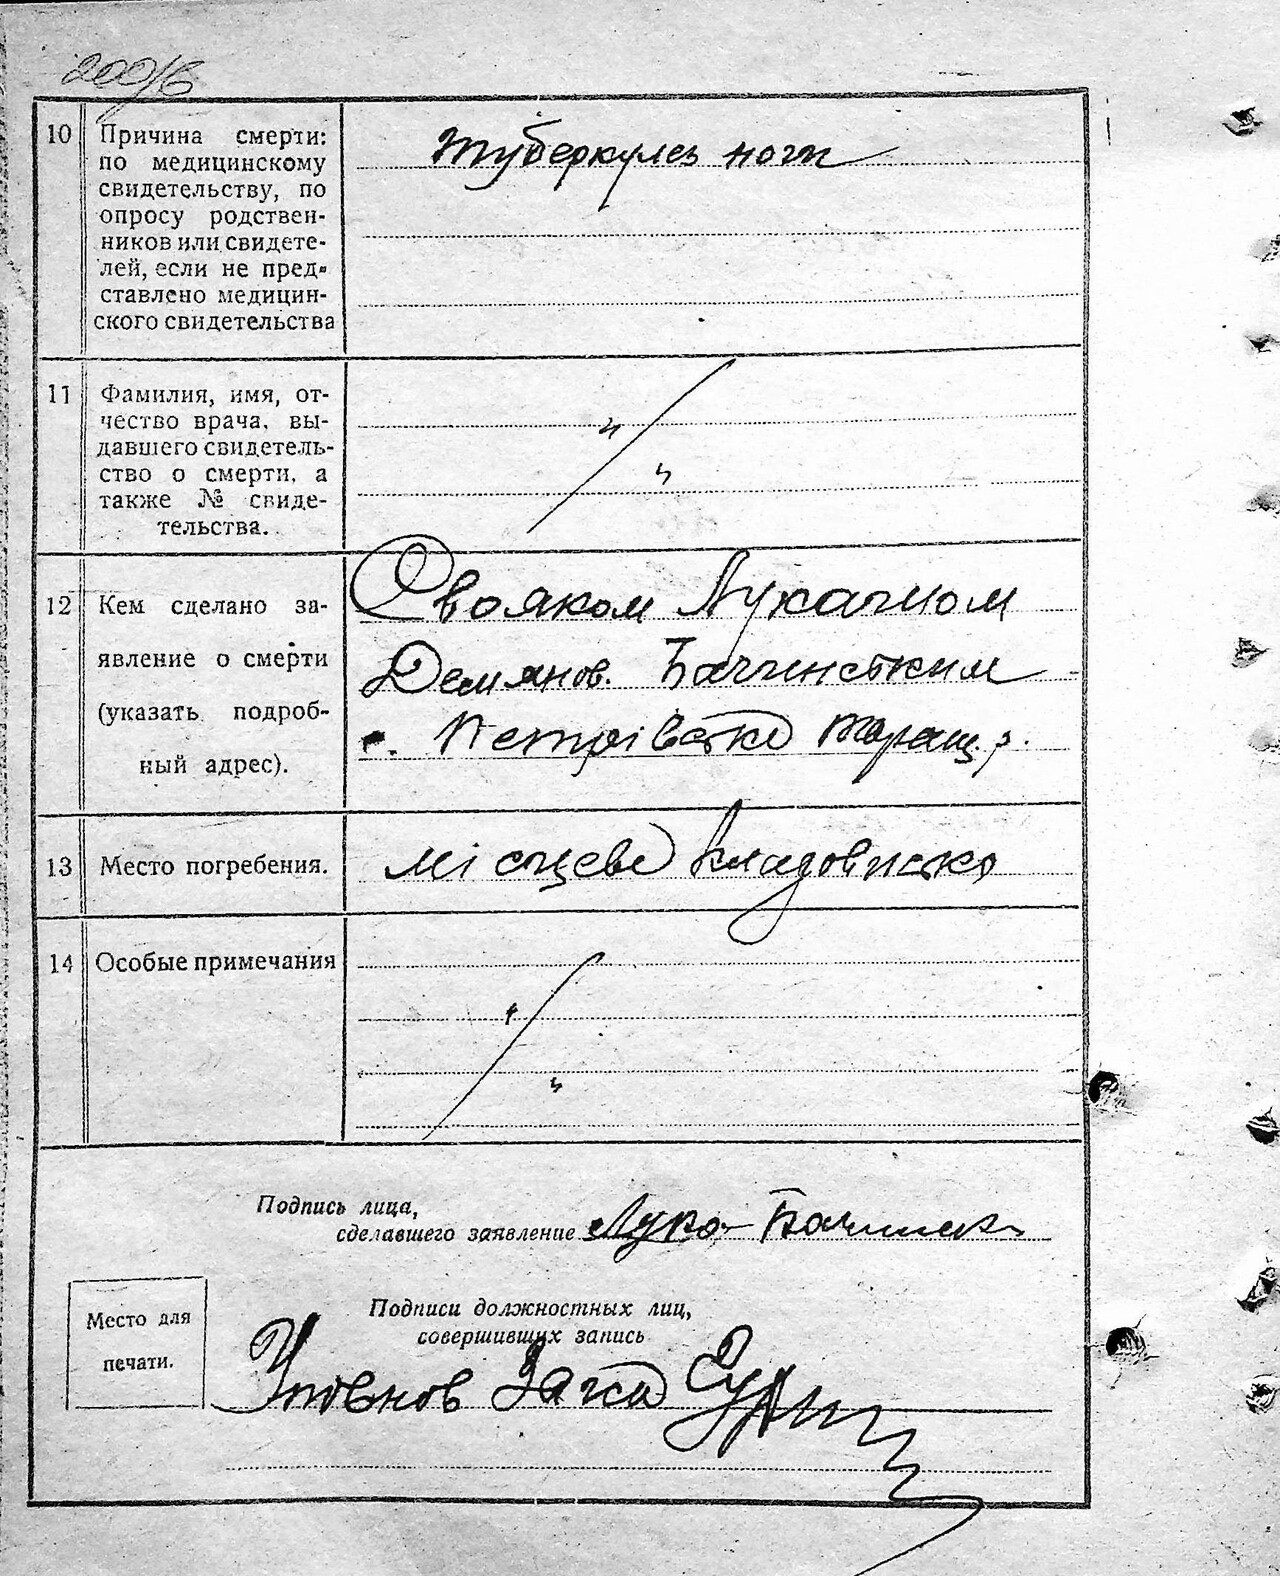 200/в
10 Причина смерти:
по медицинскому
свидетельству, по
опросу родствен-
ников или свидете-
лей, если не пред-
ставлено медицин-
ского свидетельства
туберкулез ноги
11 Фамилия, имя, от-
чество врача, вы-
давшего свидетель-
ство о смерти, а
также № свиде-
тельства.
12 Кем сделано за-
явление о смерти
(указать подроб-
ный адрес).
Свояком Лукачиом
Демянов. Бачинським
с. Петрівська Таращ. р.
13 Место погребения.
місцеве кладовисько
14 Особые примечания
Подпись лица,
сделавшего заявление Лука
Подписи должностных лиц,
совершивших запись
Место для
печати.
Уповнов Загса